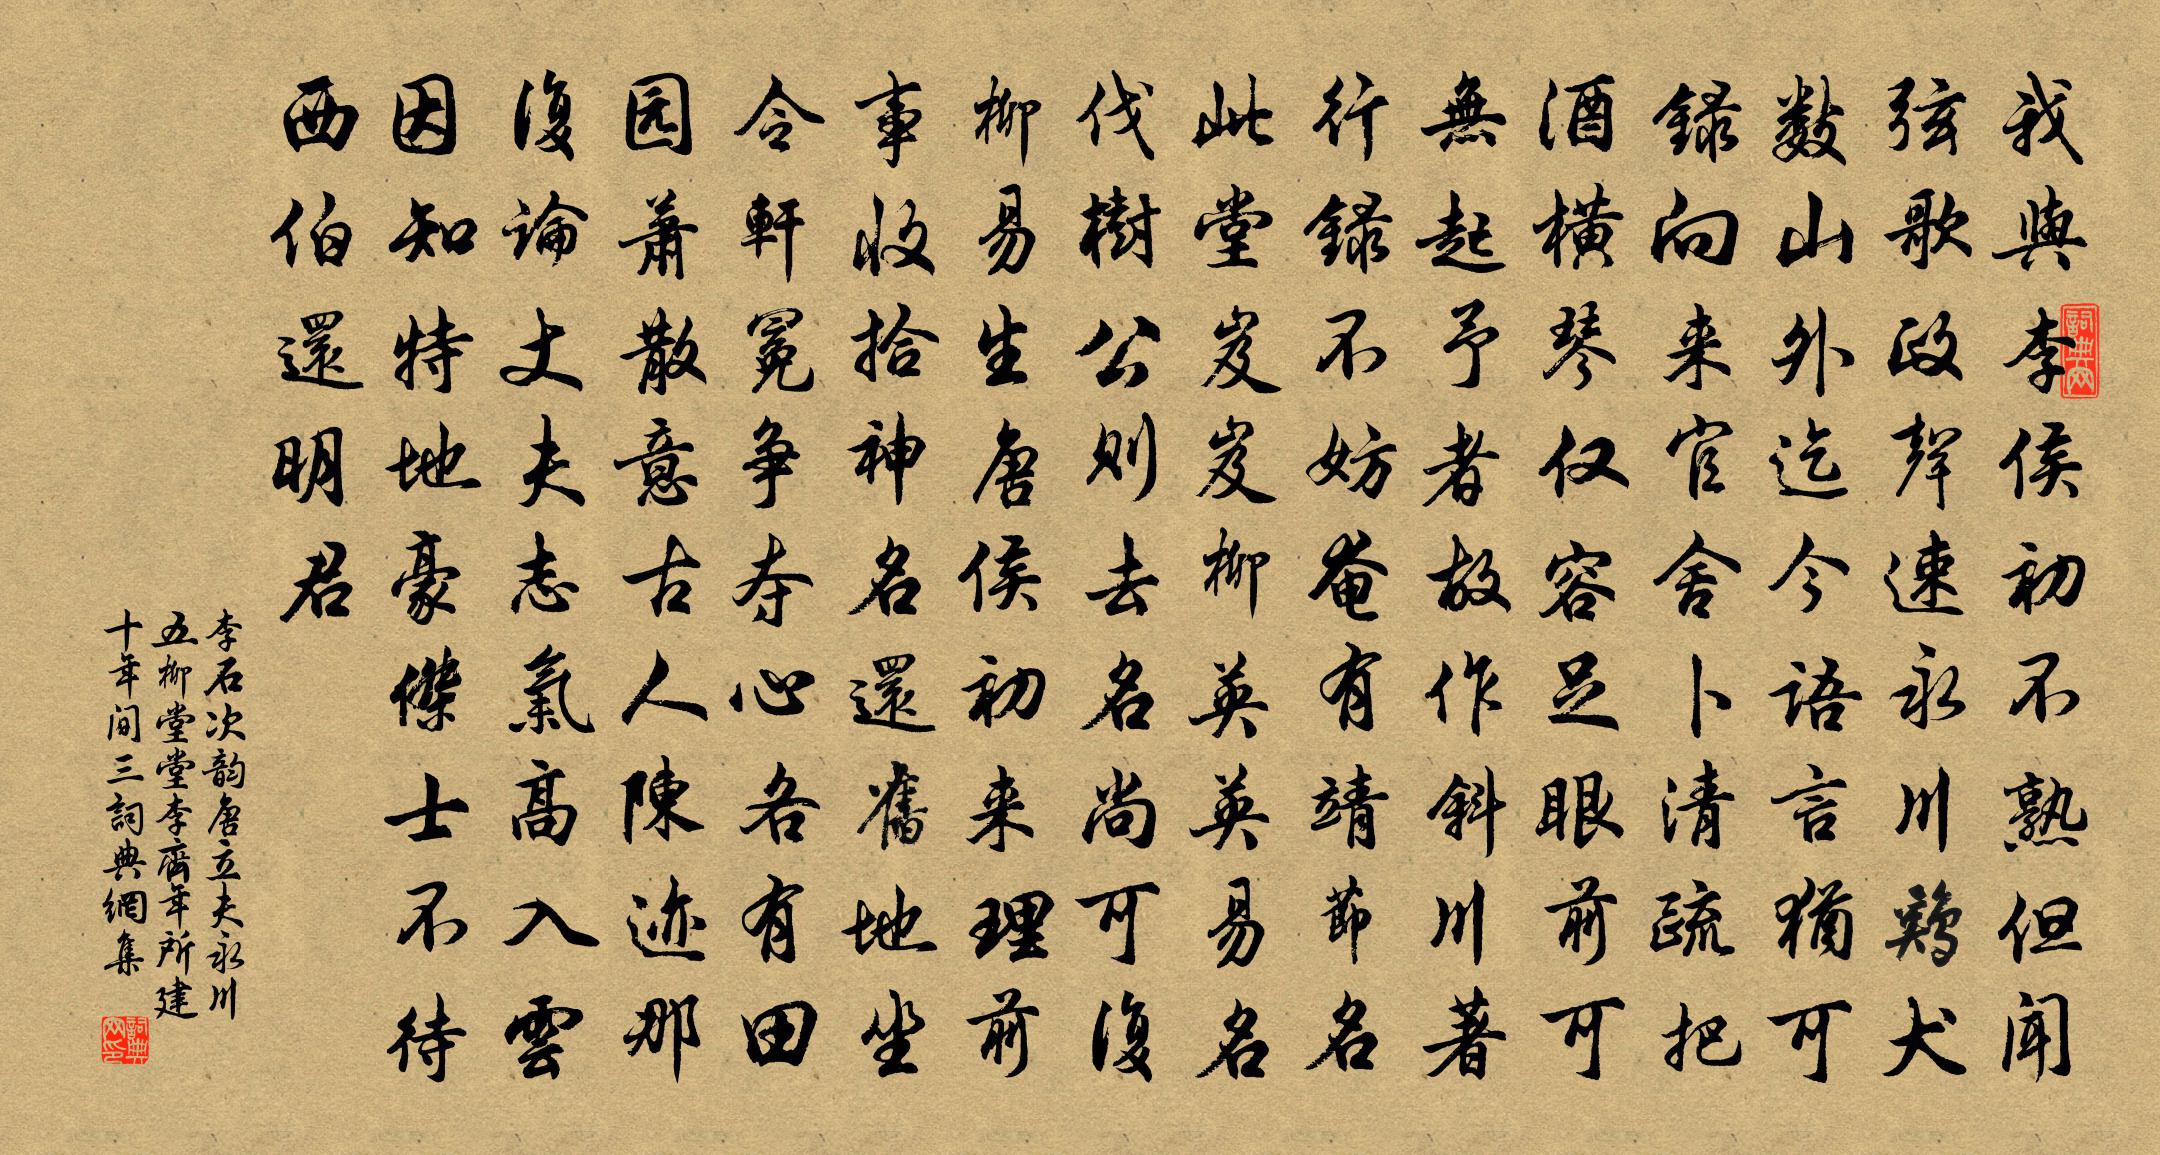 我與李侯初不熟但聞
弦歌政聲速永川鷄犬
数山外迄今語言猶可
録向来官舍卜清疏把
酒橫琴仅容足眼前可
無起予者故作斜川著
行録不妨菴有靖節名
此堂岌岌柳英英易名
伐樹公则去名尚可復
柳易生唐侯初来理前
事收拾神名還舊地坐
令軒冕争夺心各有田
园蕭散意古人陳迹那
復論丈夫志氣高入雲
因知特地豪傑士不待
西伯還明君
李石次韵唐立夫永川
五柳堂堂李齊年所建
十年间三詞典網集